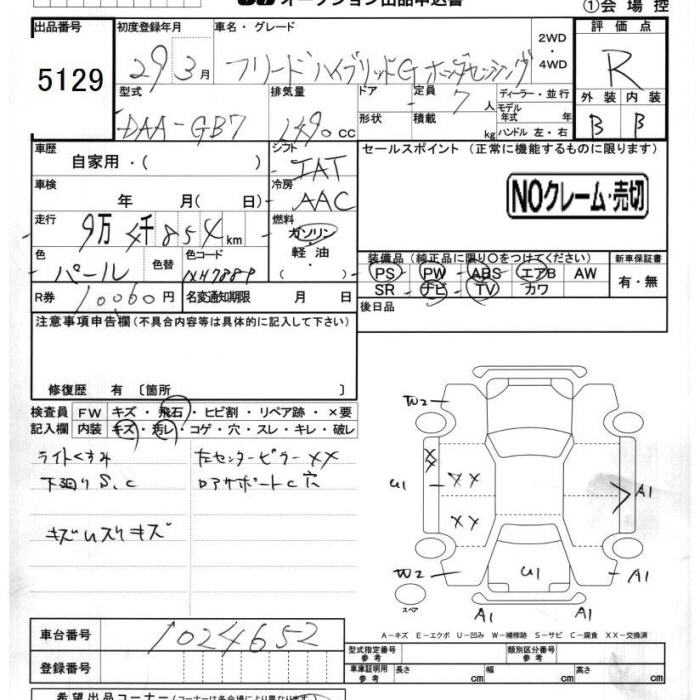 オークション出品申込書
①会場控
出品番号 初度登録年月 車名・グレード 評価点
5129 29 3月 フリードハイブリッドG ホンダセンシング 2WD・4WD R
型式 排気量 ドア 定員 7人 ディーラー・並行 外装 内装
DAA-GB7 1490cc 形状 積載 kg モデル年式 年 ハンドル 左・右 B B
車歴 自家用・( ) シフト IAT セールスポイント (正常に機能するものに限ります)
車検 年 月( 日) 冷房 AAC NOクレーム・売切
走行 9万4千854km 燃料 ガソリン・軽油・( )
色 パール 色替 色コード NH788P 装備品 (純正品に限り○をつけてください) 新車保証書
PS PW ABS エアB AW 有・無
SR ナビ TV カワ
R券 10060円 名変通知期限 月 日 後日品
注意事項申告欄(不具合内容等は具体的に記入して下さい)
修復歴 有 〔箇所 〕
検査員 FW キズ・飛石・ヒビ割・リペア跡・×要
記入欄 内装 キズ・汚レ・コゲ・穴・スレ・キレ・破レ
ライトくすみ 左センターピラーXX
下廻りS、C ロアサポートC穴
キズ U スリキズ
W2
XX
U1 XX A1
XX
W2 U1 A1
スペア A1 A1
A-キズ E-エクボ U-凹み W-補修跡 S-サビ C-腐食 XX-交換済
車台番号 1024652
型式指定番号 参考 類別区分番号 参考
登録番号 車庫証明用 参考 長さ cm 幅 cm 高さ cm
希望出品コーナー